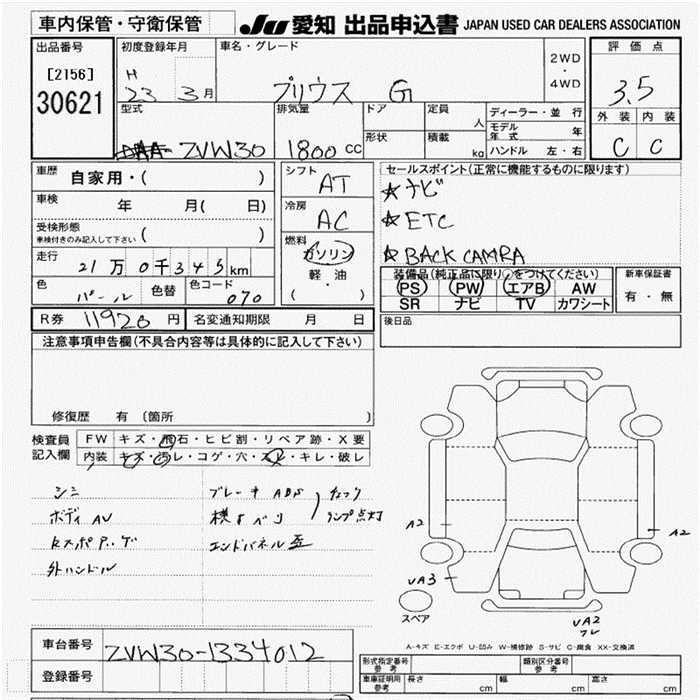 車内保管・守衛保管
JU 愛知 出品申込書 JAPAN USED CAR DEALERS ASSOCIATION
出品番号
[2156]
30621
初度登録年月
H
23 3月
車名・グレード
プリウス G
2WD
・
4WD
評価点
3.5
外装 内装
C C
型式
DAA- ZVW30
排気量
1800 CC
ドア
形状
定員
人
積載
kg
ディーラー・並行
モデル年式 年
ハンドル 左・右
車歴
自家用・( )
車検
年 月( 日)
受検形態
車検付きのみ記入して下さい ( )
走行
21万0千345km
色
パール
色替
色コード
070
シフト
AT
冷房
AC
燃料
ガソリン
軽・油
( ・ )
セールスポイント(正常に機能するものに限ります)
☆ナビ
☆ETC
☆BACK CAMRA
装備品(純正品に限り○をつけてください)
PS PW エアB AW
SR ナビ TV カワシート
新車保証書
有・無
R券 11920円
名変通知期限 月 日
後日品
注意事項申告欄(不具合内容等は具体的に記入して下さい)
修復歴 有 〔箇所 〕
検査員
記入欄
FW キズ・飛石・ヒビ割・リペア跡・X要
内装 キズ・汚レ・コゲ・穴・スレ・キレ・破レ
シミ
ボディAU
外ハンドル
ブレーキ ABS
横すべり
チェック
ランプ点灯
エンドパネル歪
A2
A2
UA3
UA2
スペア
A-キズ E-エクボ U-凹み W-補修跡 S-サビ C-腐食 XX-交換済
車台番号
ZVW30-1334012
登録番号
形式指定番号
参考
類別区分番号
参考
車庫証明用
参考
長さ cm
幅 cm
高さ cm